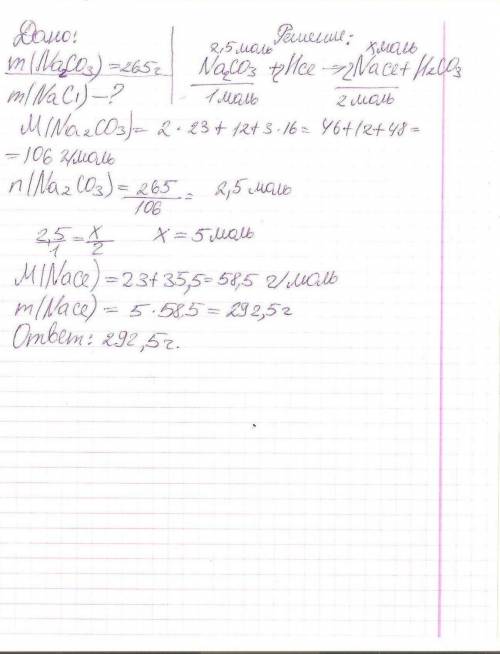 Дано:
m(Na2CO3)=265г
m(NaCl)-?
Решение:
2,5 моль x моль
Na2CO3 + 2HCl → 2NaCl + H2CO3
1 моль 2 моль
M(Na2CO3) = 2·23+12+3·16 = 46+12+48 =
= 106 г/моль
n(Na2CO3) = 265/106 = 2,5 моль
2,5/1 = x/2 x = 5 моль
M(NaCl) = 23+35,5 = 58,5 г/моль
m(NaCl) = 5·58.5 = 292,5г
Ответ: 292,5г.